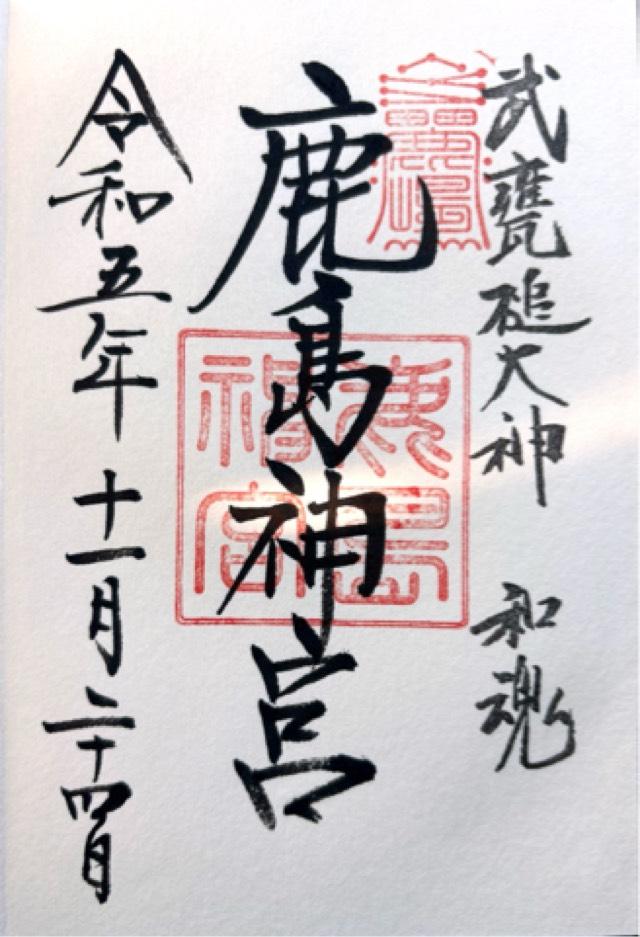 武甕槌大神 和魂
鹿嶋
鹿島神宮
鹿島神宮
令和五年十一月二十四日